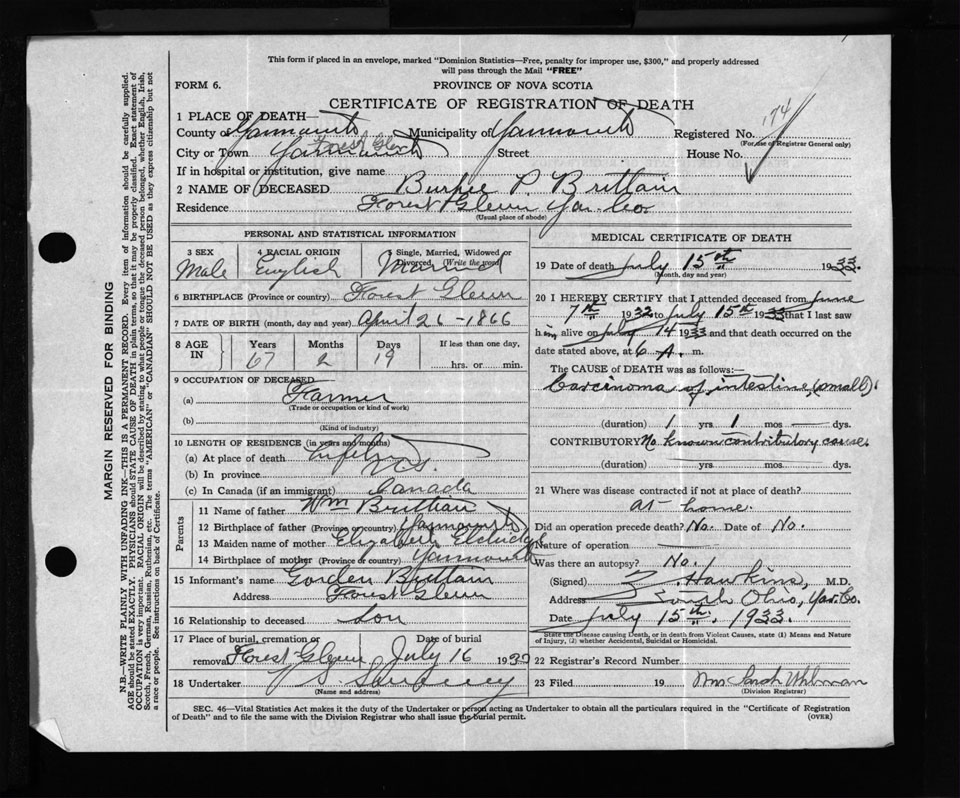 This form if placed in an envelope, marked "Dominion Statistics—Free, penalty for improper use, $300," and properly addressed
will pass through the Mail "FREE"
FORM 6. PROVINCE OF NOVA SCOTIA
CERTIFICATE OF REGISTRATION OF DEATH
174
1 PLACE OF DEATH—
County of Yarmouth Municipality of Yarmouth Registered No.
(For use of Registrar General only)
City or Town Yarmouth Street House No.
If in hospital or institution, give name
2 NAME OF DECEASED Burpee P. Brittain
Residence Forest Glenn Yar. Co.
(Usual place of abode)
PERSONAL AND STATISTICAL INFORMATION
3 SEX 4 RACIAL ORIGIN 5 Single, Married, Widowed or Divorced, (Write the word)
Male English Married
6 BIRTHPLACE (Province or country) Forest Glenn
7 DATE OF BIRTH (month, day and year) April 26 - 1866
8 AGE IN Years Months Days If less than one day,
67 2 19 hrs. or min.
9 OCCUPATION OF DECEASED
(a) Farmer
(Trade or occupation or kind of work)
(b)
(Kind of industry)
10 LENGTH OF RESIDENCE (in years and months)
(a) At place of death
(b) In province N.S.
(c) In Canada (if an immigrant) Canada
Parents
11 Name of father Wm Brittain
12 Birthplace of father (Province or country) Yarmouth
13 Maiden name of mother Elizabeth
14 Birthplace of mother (Province or country) Yarmouth
15 Informant's name Gorden Brittain
Address Forest Glenn
16 Relationship to deceased Son
17 Place of burial, cremation or removal Date of burial
Forest Glenn July 16 1933
18 Undertaker
(Name and address)
MEDICAL CERTIFICATE OF DEATH
19 Date of death July 15th 1933.
(Month, day and year)
20 I HEREBY CERTIFY that I attended deceased from June
7th 1932 to July 15th 1933 that I last saw
him alive on July 14 1933 and that death occurred on the
date stated above, at 6 A. m.
The CAUSE of DEATH was as follows:—
Carcinoma of intestine, (small)
(duration) 1 yrs 1 mos — dys.
CONTRIBUTORY No known contributory cause.
(duration) yrs. mos. dys.
21 Where was disease contracted if not at place of death?
at home.
Did an operation precede death? No. Date of No.
Nature of operation
Was there an autopsy? No.
(Signed) Z. Hawkins, M.D.
Address South Ohio, Yar. Co.
Date July 15th, 1933.
State the Disease causing Death, or in death from Violent Causes, state (1) Means and Nature
of Injury, (2) whether Accidental, Suicidal or Homicidal.
22 Registrar's Record Number
23 Filed 19 Mrs Sarah Uhlman
(Division Registrar)
SEC. 46—Vital Statistics Act makes it the duty of the Undertaker or person acting as Undertaker to obtain all the particulars required in the "Certificate of Registration
of Death" and to file the same with the Division Registrar who shall issue the burial permit. (OVER)
MARGIN RESERVED FOR BINDING
N.B.—WRITE PLAINLY WITH UNFADING INK—THIS IS A PERMANENT RECORD. Every item of information should be carefully supplied.
AGE should be stated EXACTLY. PHYSICIANS should STATE CAUSE OF DEATH in plain terms, so that it may be properly classified. Exact statement of
OCCUPATION is very important. RACIAL ORIGIN will be described by stating to what people or tongue the deceased person belonged, whether English, Irish,
Scotch, French, German, Russian, Ruthenian, etc. The terms "AMERICAN" or "CANADIAN" SHOULD NOT BE USED as they express citizenship but not
a race or people. See instructions on back of Certificate.